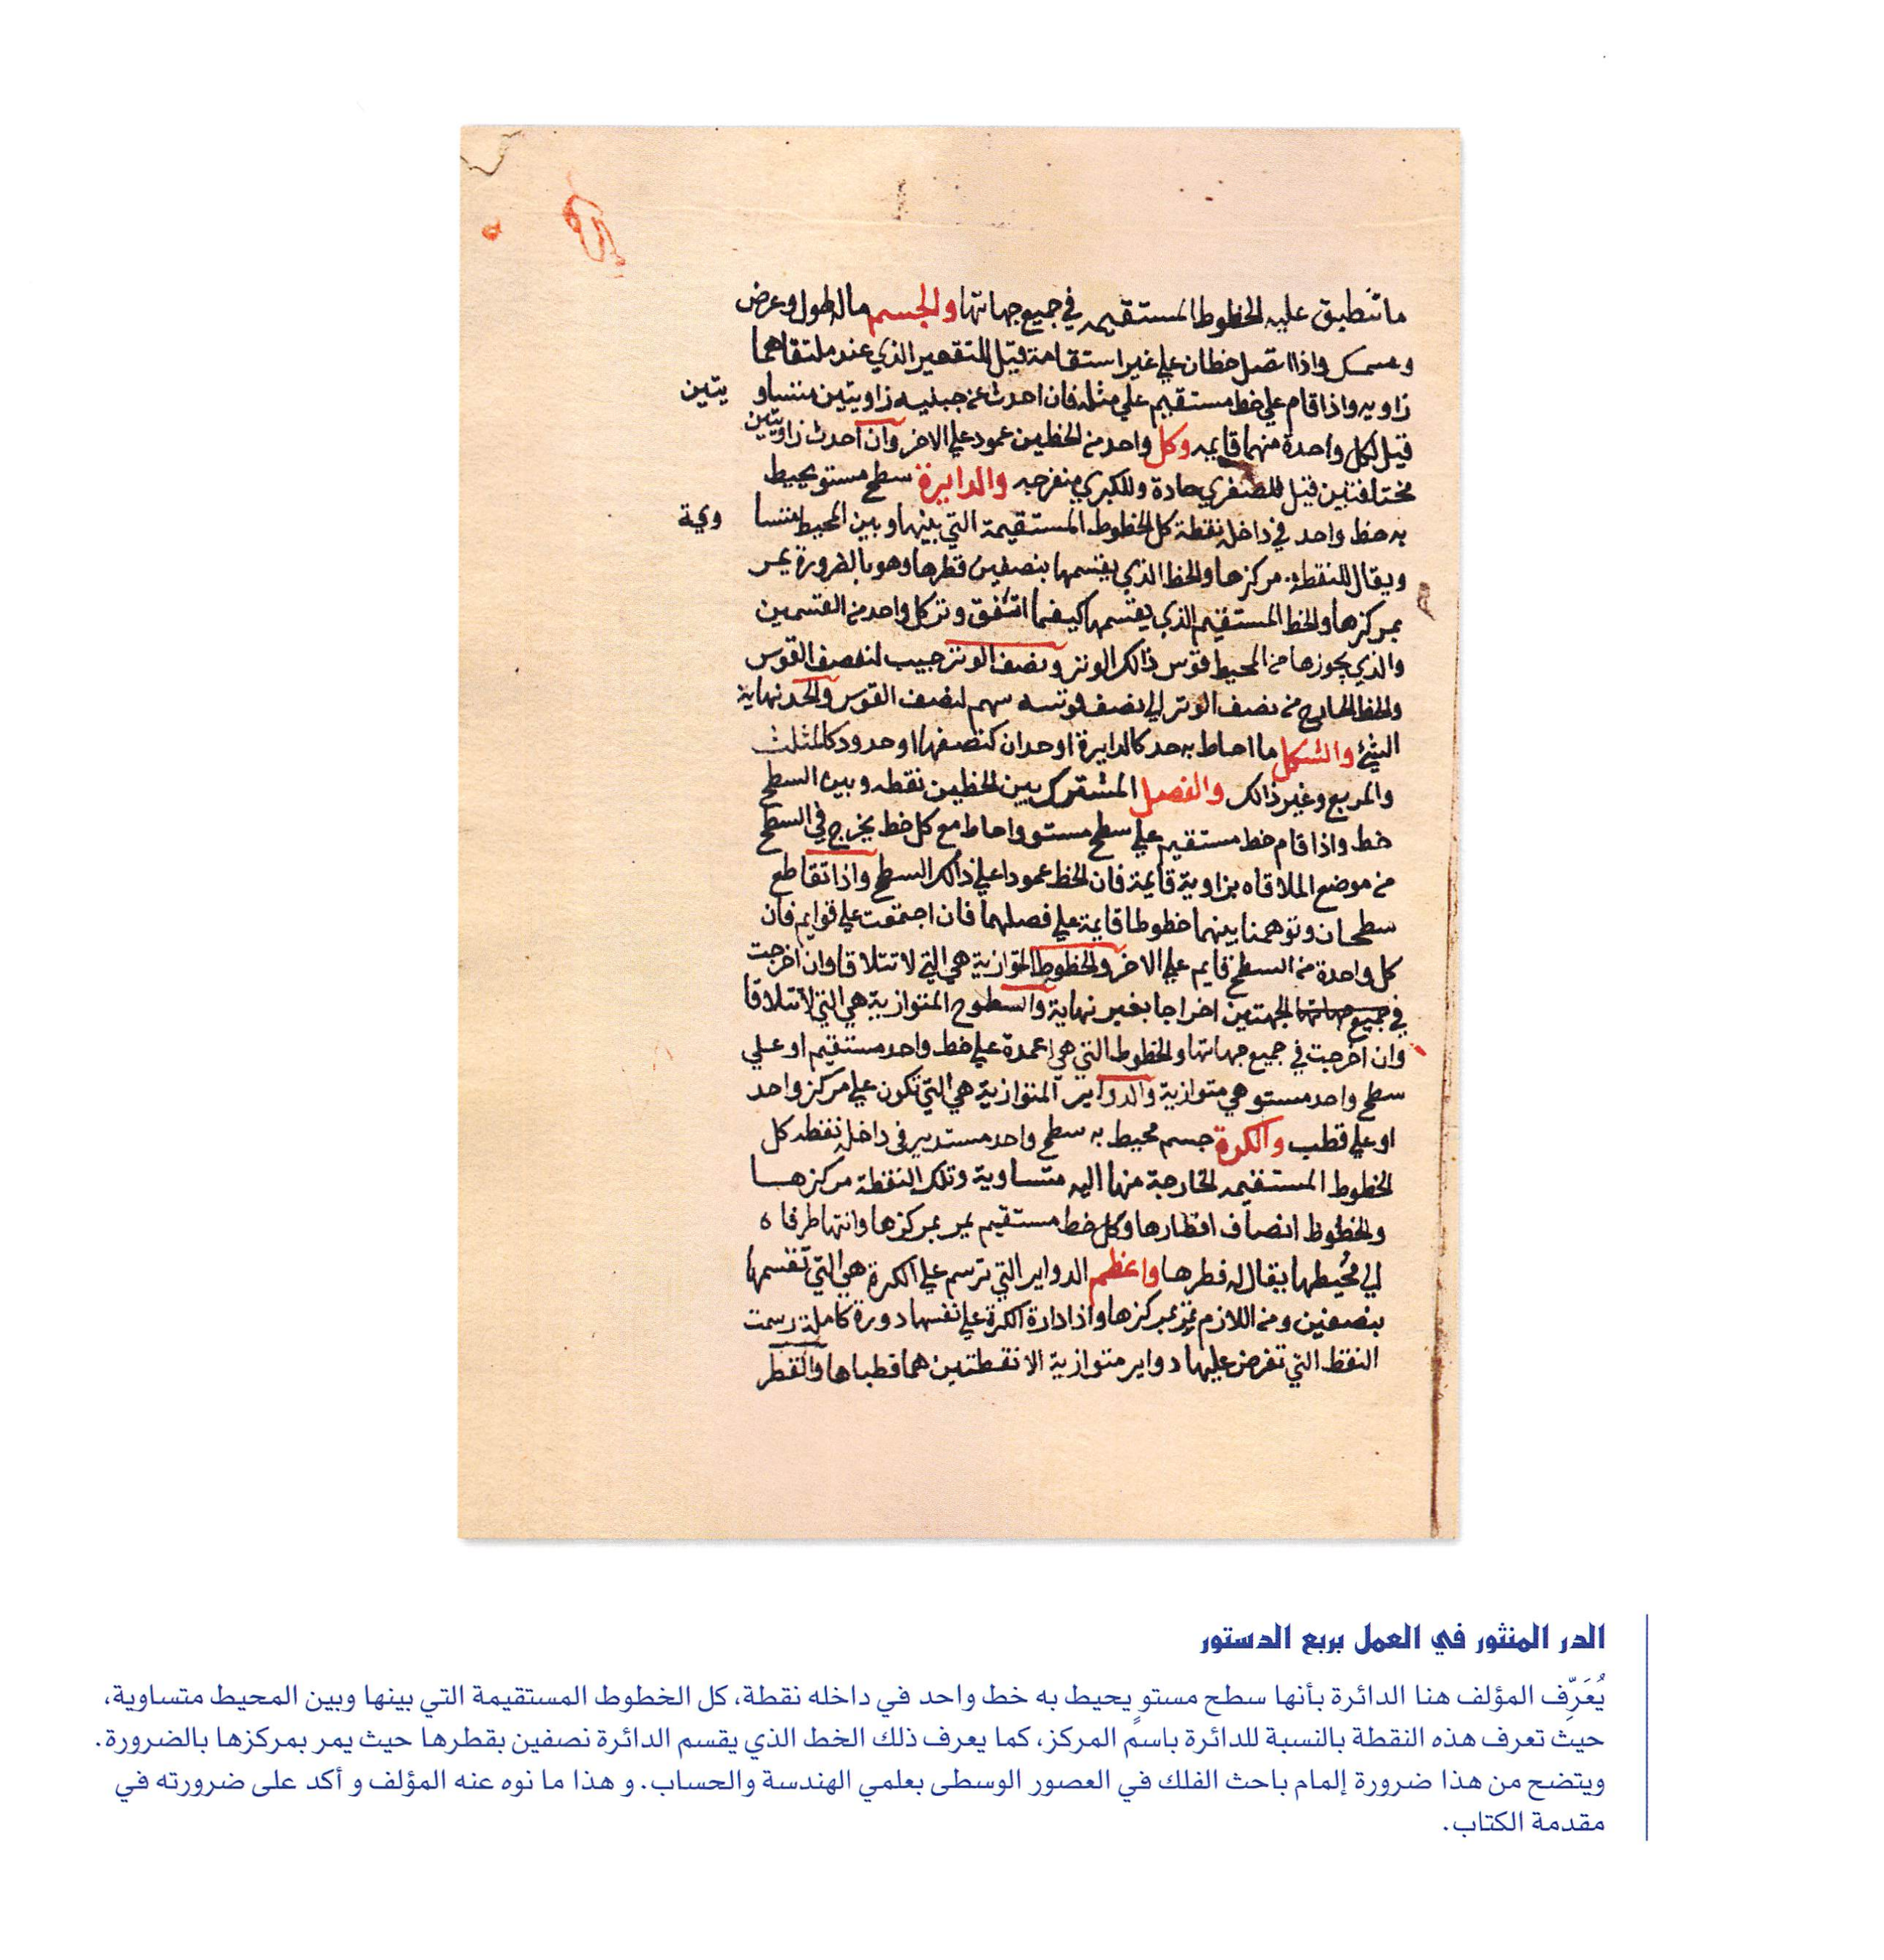 ما تنطبق عليه الخطوط المستقيمه في جميع جهاتها والجسم ماله طول وعرض
وسمك واذا اتصل خطان علي غير استقامة قيل للتقعير الذي عند ملتقاهما
زاويه واذا قام علي خط مستقيم علي مثله فان احدث عن جبنيه زاويتين متساو يتين
قيل لكل واحدة منهما قايمه وكل واحد من الخطين عمود علي الاخر وان احدث زاويتين
مختلفتين قيل للصغري حادة وللكبري منفرجه والدايرة سطح مستو يحيط
به خط واحد في داخله نقطة كل الخطوط المستقيمة التي بينها وبين المحيط متسا وية
ويقال للنقطة مركزها والخط الذي يقسمها بنصفين قطرها وهو بالضرورة يمر
بمركزها والخط المستقيم الذي يقسمها كيفما اتفق وتر كل واحد من القسمين
والذي يحوزها من المحيط قوس ذالك الوتر ونصف الوتر جيب لنصف القوس
والخط الخارج من نصف الوتر الي نصف قوسه سهم لنصف القوس والحد نهاية
الشئ والشكل ما احاط به حد كالدايرة او حدان كنصفها او حدود كالمثلث
والمربع وغير ذالك والفصل المشترك بين الخطين نقطه وبين السطح
خط واذا قام خط مستقيم علي سطح مستو واحاط مع كل خط يخرج في السطح
من موضع الملاقاه بزاوية قايمة فان الخط عمودا علي ذالك السطح واذا تقاطع
سطحان وتوهمنا بينهما خطوطا قايمة علي فصلهما فان اجتمعت علي قوايم فان
كل واحدة من السطح قايم علي الاخر والخطوط المتوازية هي التي لا تتلاقا وان اخرجت
في جميع جهاتها الجهتين اخراجا بغير نهاية والسطوح المتوازية هي التي لا تتلاقا
وان اخرجت في جميع جهاتها والخطوط التي هي اعمدة علي خط واحد مستقيم او علي
سطح واحد مستو هي متوازية والدواير المتوازية هي التي تكون علي مركز واحد
او علي قطب والكرة جسم محيط به سطح واحد مستدير في داخله نقطه كل
الخطوط المستقيمه الخارجة منها اليه متساوية وتلك النقطة مركزها
والخطوط انصاف اقطارها وكل خط مستقيم يمر بمركزها وانتها طرفاه
الي محيطها يقال له قطرها واعظم الدواير التي ترسم علي الكرة هي التي تقسمها
بنصفين ومن اللازم تمر بمركزها واذا دارة الكرة علي نفسها دورة كاملة رسمت
النقط التي تفرض عليها دواير متوازية الا نقطتين هما قطباها والقطر
الدر المنثور في العمل بربع الدستور
يُعَرِّف المؤلف هنا الدائرة بأنها سطح مستوٍ يحيط به خط واحد في داخله نقطة، كل الخطوط المستقيمة التي بينها وبين المحيط متساوية،
حيث تعرف هذه النقطة بالنسبة للدائرة باسم المركز، كما يعرف ذلك الخط الذي يقسم الدائرة نصفين بقطرها حيث يمر بمركزها بالضرورة.
ويتضح من هذا ضرورة إلمام باحث الفلك في العصور الوسطى بعلمي الهندسة والحساب. و هذا ما نوه عنه المؤلف و أكد على ضرورته في
مقدمة الكتاب.